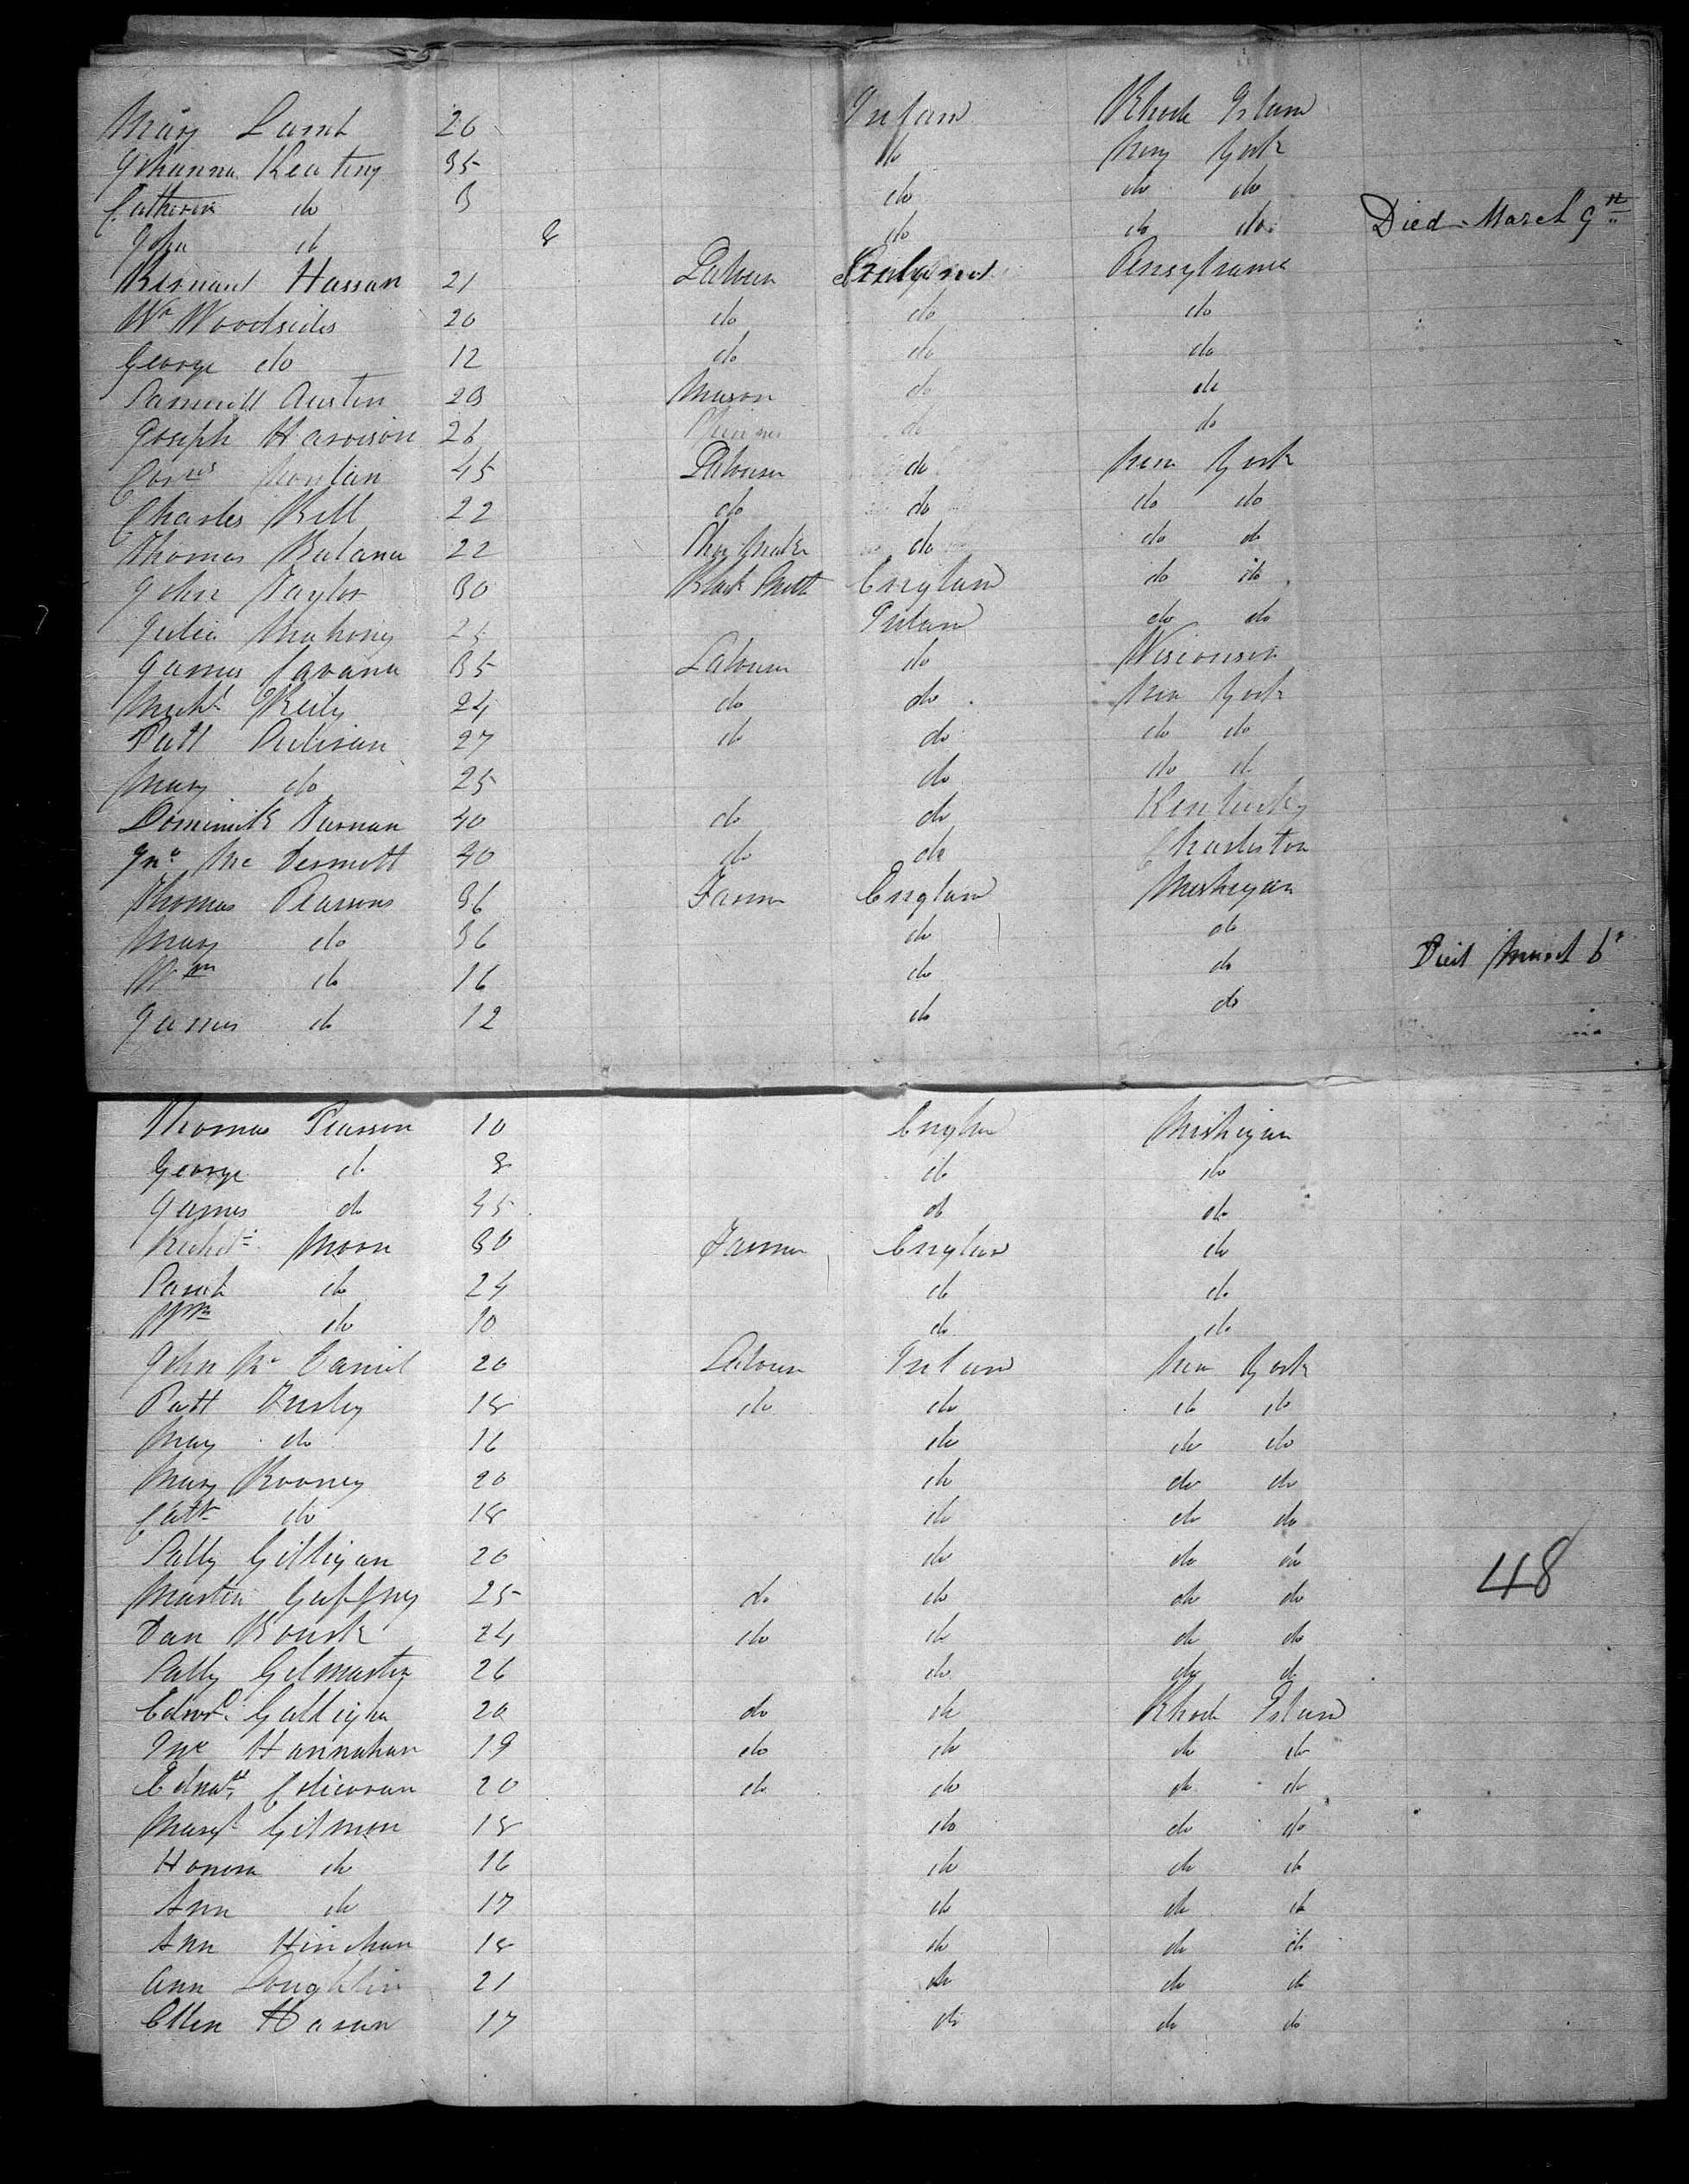 Mary Lamb 26 Irland Rhode Island
Johanna Keating 35 do New York
Catherine do 3 do do do
John do 8 do do do Died March 9th
Bernard Hassan 21 Labourer Ireland Pensylvania
Wm Woodsides 20 do do do
George do 12 do do do
Samuell Austin 23 Mason do do
Joseph Harrison 26 do do
45 Labourer do New York
Charles Bell 22 do do do do
Thomas 22 Shoe Maker do do do
John Taylor 30 Black Smith England do do
Julia Mahony Irland do do
James Cavana 35 Labourer do Wisconsin
Michl Reily 24 do do New York
Patt 27 do do do do
Mary do 25 do do do
Dominick 40 do do Kentucky
Jno Mc Dermott 40 do do Charleston
Thomas Pearsons 36 Farmer England Mishigan
Mary do 36 do do
Wm do 16 do do Died March 6
James do 12 do do
Thomas Pearson 10 Mishigan
George do 8 do do
James do 45 do do
Richd Moon 30 Farmer England do
Sarah do 24 do do
Wm do 10 do do
John Mc Daniel 20 Labourer Irland New York
Patt 18 do do do do
Mary do 16 do do do
Mary Rooney 20 do do do
Cath do 18 do do do
Sally Gilligan 20 do do do
Martin Gaffney 25 do do do do 48
Dan Bourk 24 do do do do
Sally Gilmartin 26 do do do
Edwd 20 do do Rhode Island
Jno Hannahan 19 do do do do
Edwd 20 do do do do
Margt Gilmon 18 do do do
Honora do 16 do do do
Ann do 17 do do do
Ann 18 do do do
Ann Loughlin 21 do do do
Ellen 17 do do do